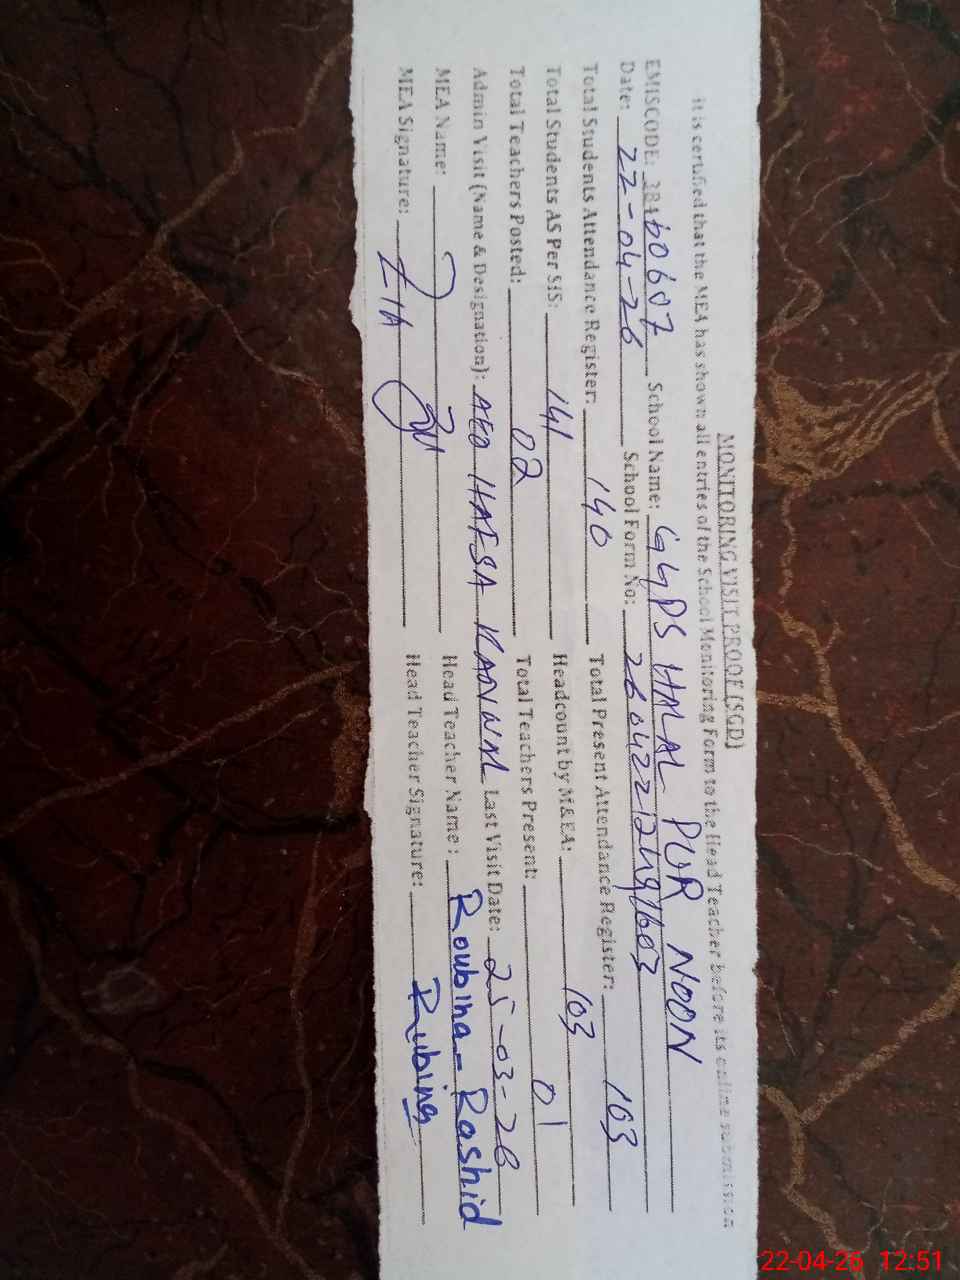 MONITORING VISIT PROOF (SGD)
it is certified that the MEA has shown all entries of the School Monitoring Form to the Head Teacher before its online submission
EMISCODE: 38460607 School Name: GGPS HALAL PUR NOON
Date: 22-04-26 School Form No:
Total Students Attendance Register: 140 Total Present Attendance Register: 103
Total Students AS Per SIS: 141 Headcount by M&EA: 103
Total Teachers Posted: 02 Total Teachers Present: 01
Admin Visit (Name & Designation): AEO HAFSA KANWAL Last Visit Date: 25-03-26
MEA Name: Head Teacher Name : Roubina-Rashid
MEA Signature: Head Teacher Signature: Rubina
22-04-26 12:51